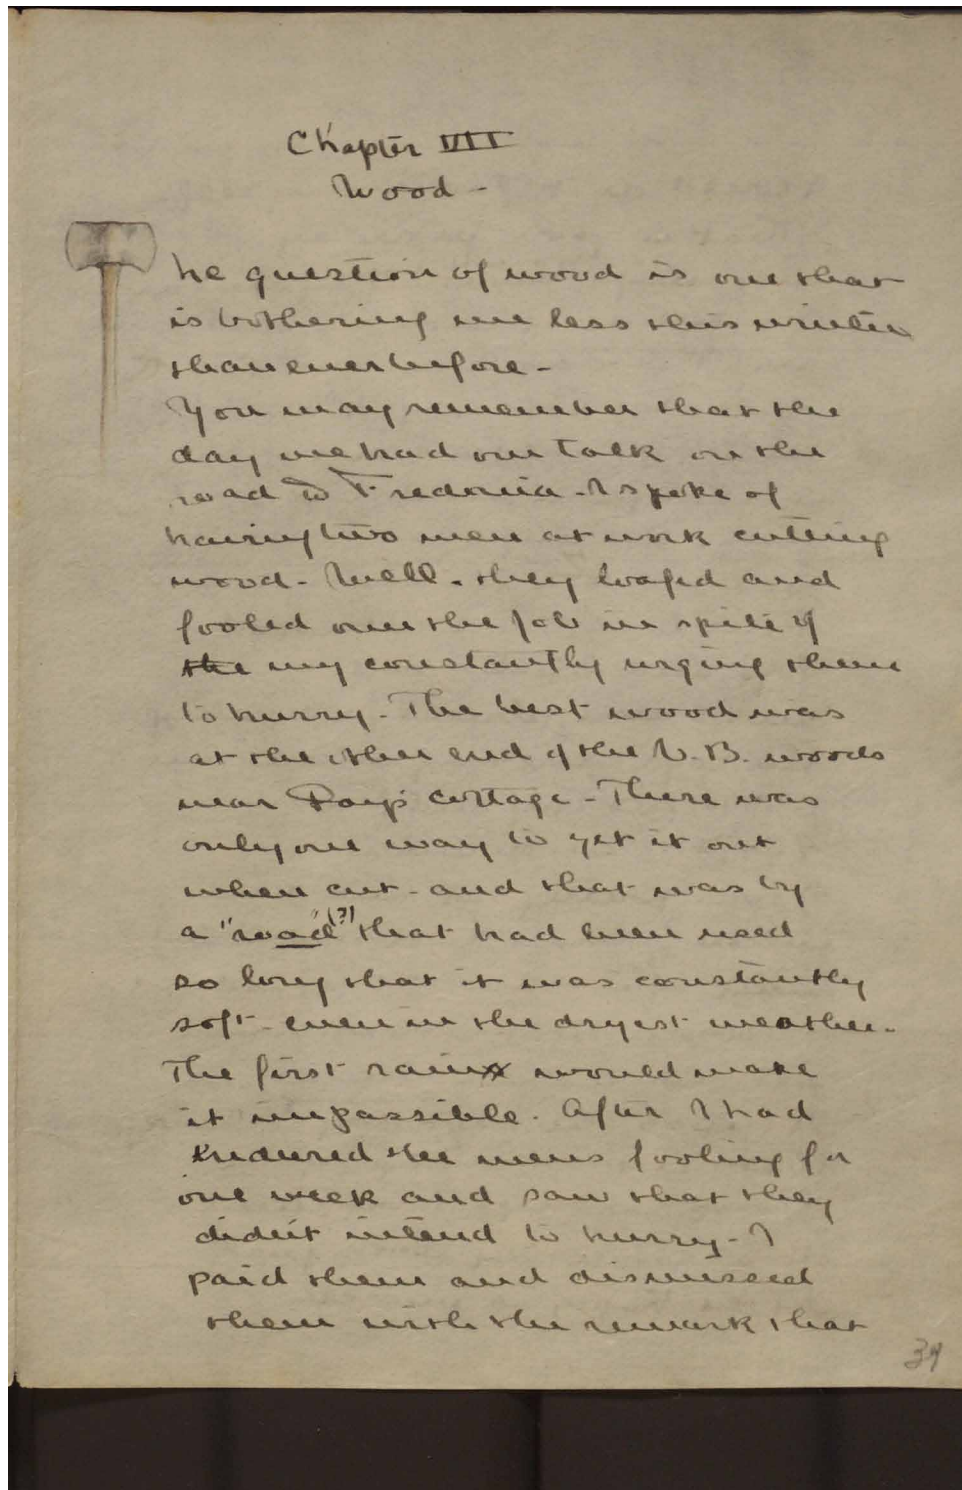 Chapter VII
Wood -
The question of wood is one that
is bothering me less this winter
than ever before -
You may remember that the
day we had our talk on the
road to Fredonia - I spoke of
having two men at work cutting
wood - Well - they loafed and
fooled over the job in spite of
the my constantly urging them
to hurry - The best wood was
at the other end of the V. B. woods
near Roy's cottage - There was
only one way to get it out
when cut - and that was by
a "road"(?) that had been used
so long that it was constantly
soft - even in the dryest weather -
The first rain would make
it impassible. After I had
endured the mens fooling for
one week and saw that they
didn't intend to hurry - I
paid them and dismissed
them with the remark that
39